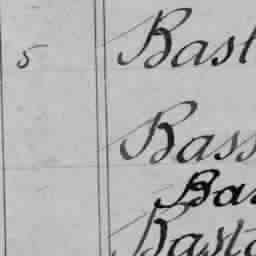 5 Bast
Bass
Bas
Basto